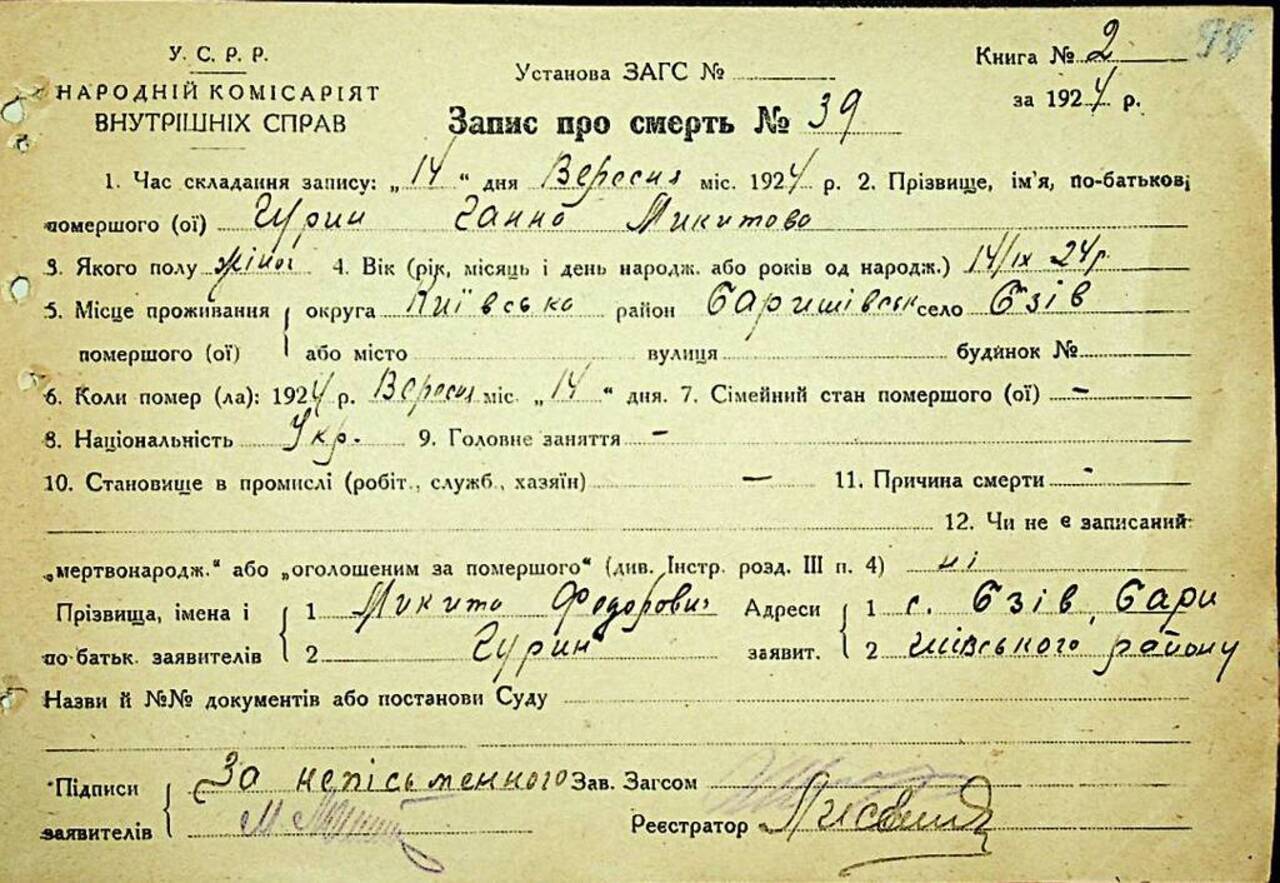 У. С. Р. Р.
НАРОДНІЙ КОМІСАРІЯТ
ВНУТРІШНІХ СПРАВ
Установа ЗАГС №
Запис про смерть № 39
Книга № 2
за 1924 р.
1. Час складання запису: „14“ дня Вересня міс. 1924 р. 2. Прізвище, ім'я, по-батькові
помершого (ої) Гурин Ганна Микитова
3. Якого полу жіноч 4. Вік (рік, місяць і день народж. або років од народж.) 14/IX 24 р
5. Місце проживання округа Київська район Баришівськ село Бзів
помершого (ої) або місто вулиця будинок №
6. Коли помер (ла): 1924 р. Вересня міс. „14“ дня. 7. Сімейний стан помершого (ої) –
8. Національність Укр. 9. Головне заняття –
10. Становище в промислі (робіт., служб., хазяїн) – 11. Причина смерти -
12. Чи не є записаний
„мертвонародж.“ або „оголошеним за помершого“ (див. Інстр. розд. III п. 4) ні
Прізвища, імена і 1 Микита Федорович Адреси 1 с. Бзів, Бари
по батьк. заявителів 2 Гурин заявит. 2 шівського району
Назви й №№ документів або постанови Суду
Підписи За непісьменного Зав. Загсом
заявителів Реєстратор